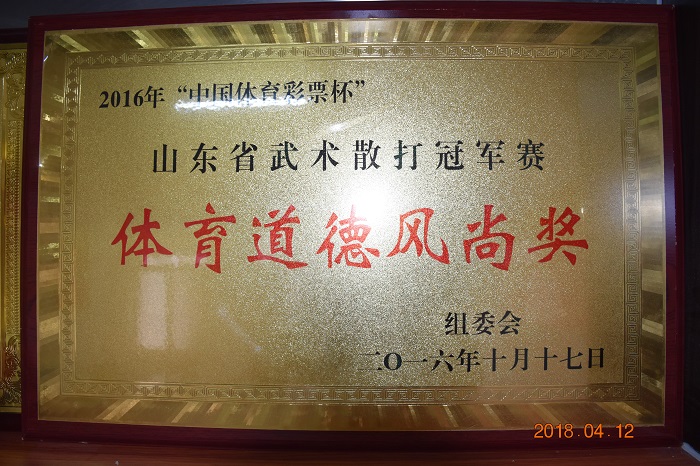 2016年“中国体育彩票杯”
山东省武术散打冠军赛
体育道德风尚奖
组委会
二O一六年十月十七日
2018.04.12